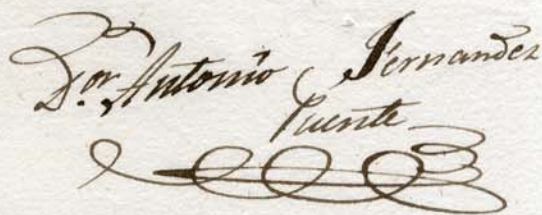 Dor. Antonio Fernandez
Puente